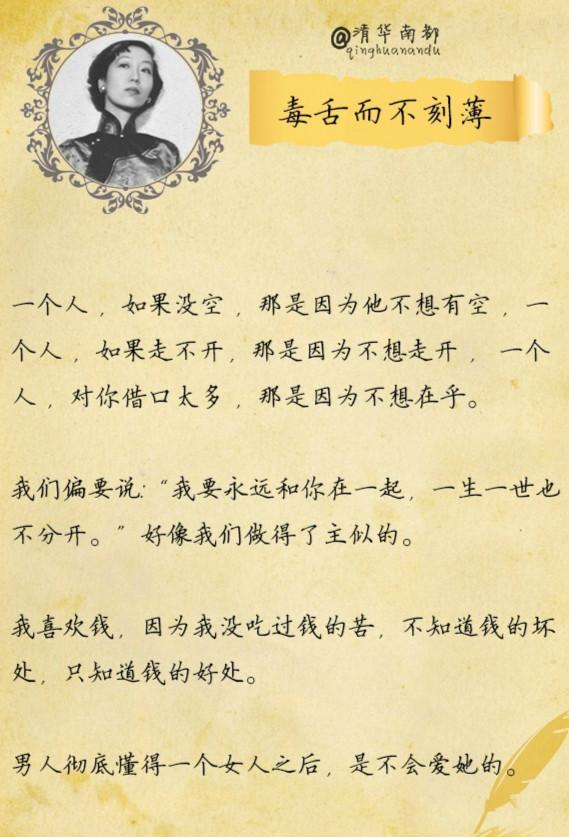 @清华南都
qinghuanandu
毒舌而不刻薄
一个人，如果没空，那是因为他不想有空，一
个人，如果走不开，那是因为不想走开，一个
人，对你借口太多，那是因为不想在乎。
我们偏要说:“我要永远和你在一起，一生一世也
不分开。”好像我们做得了主似的。
我喜欢钱，因为我没吃过钱的苦，不知道钱的坏
处，只知道钱的好处。
男人彻底懂得一个女人之后，是不会爱她的。